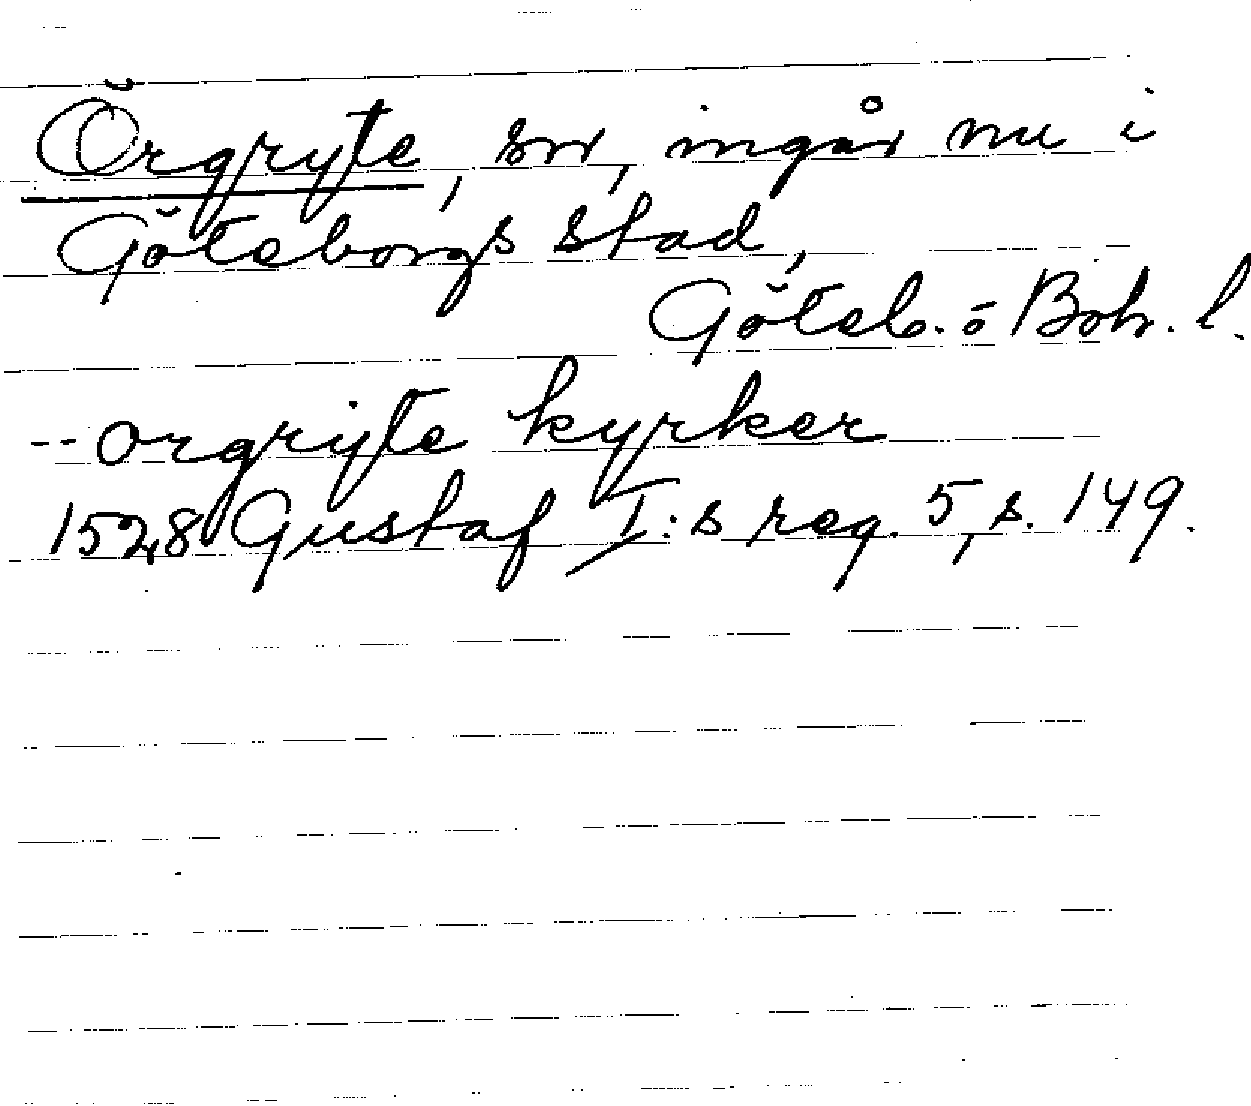 Örgryte, sn, ingår nu i
Göteborgs stad,
Göteb. o Boh. l.
-- orgryte kyrker
1528 Gustaf I:s reg. 5, s. 149.